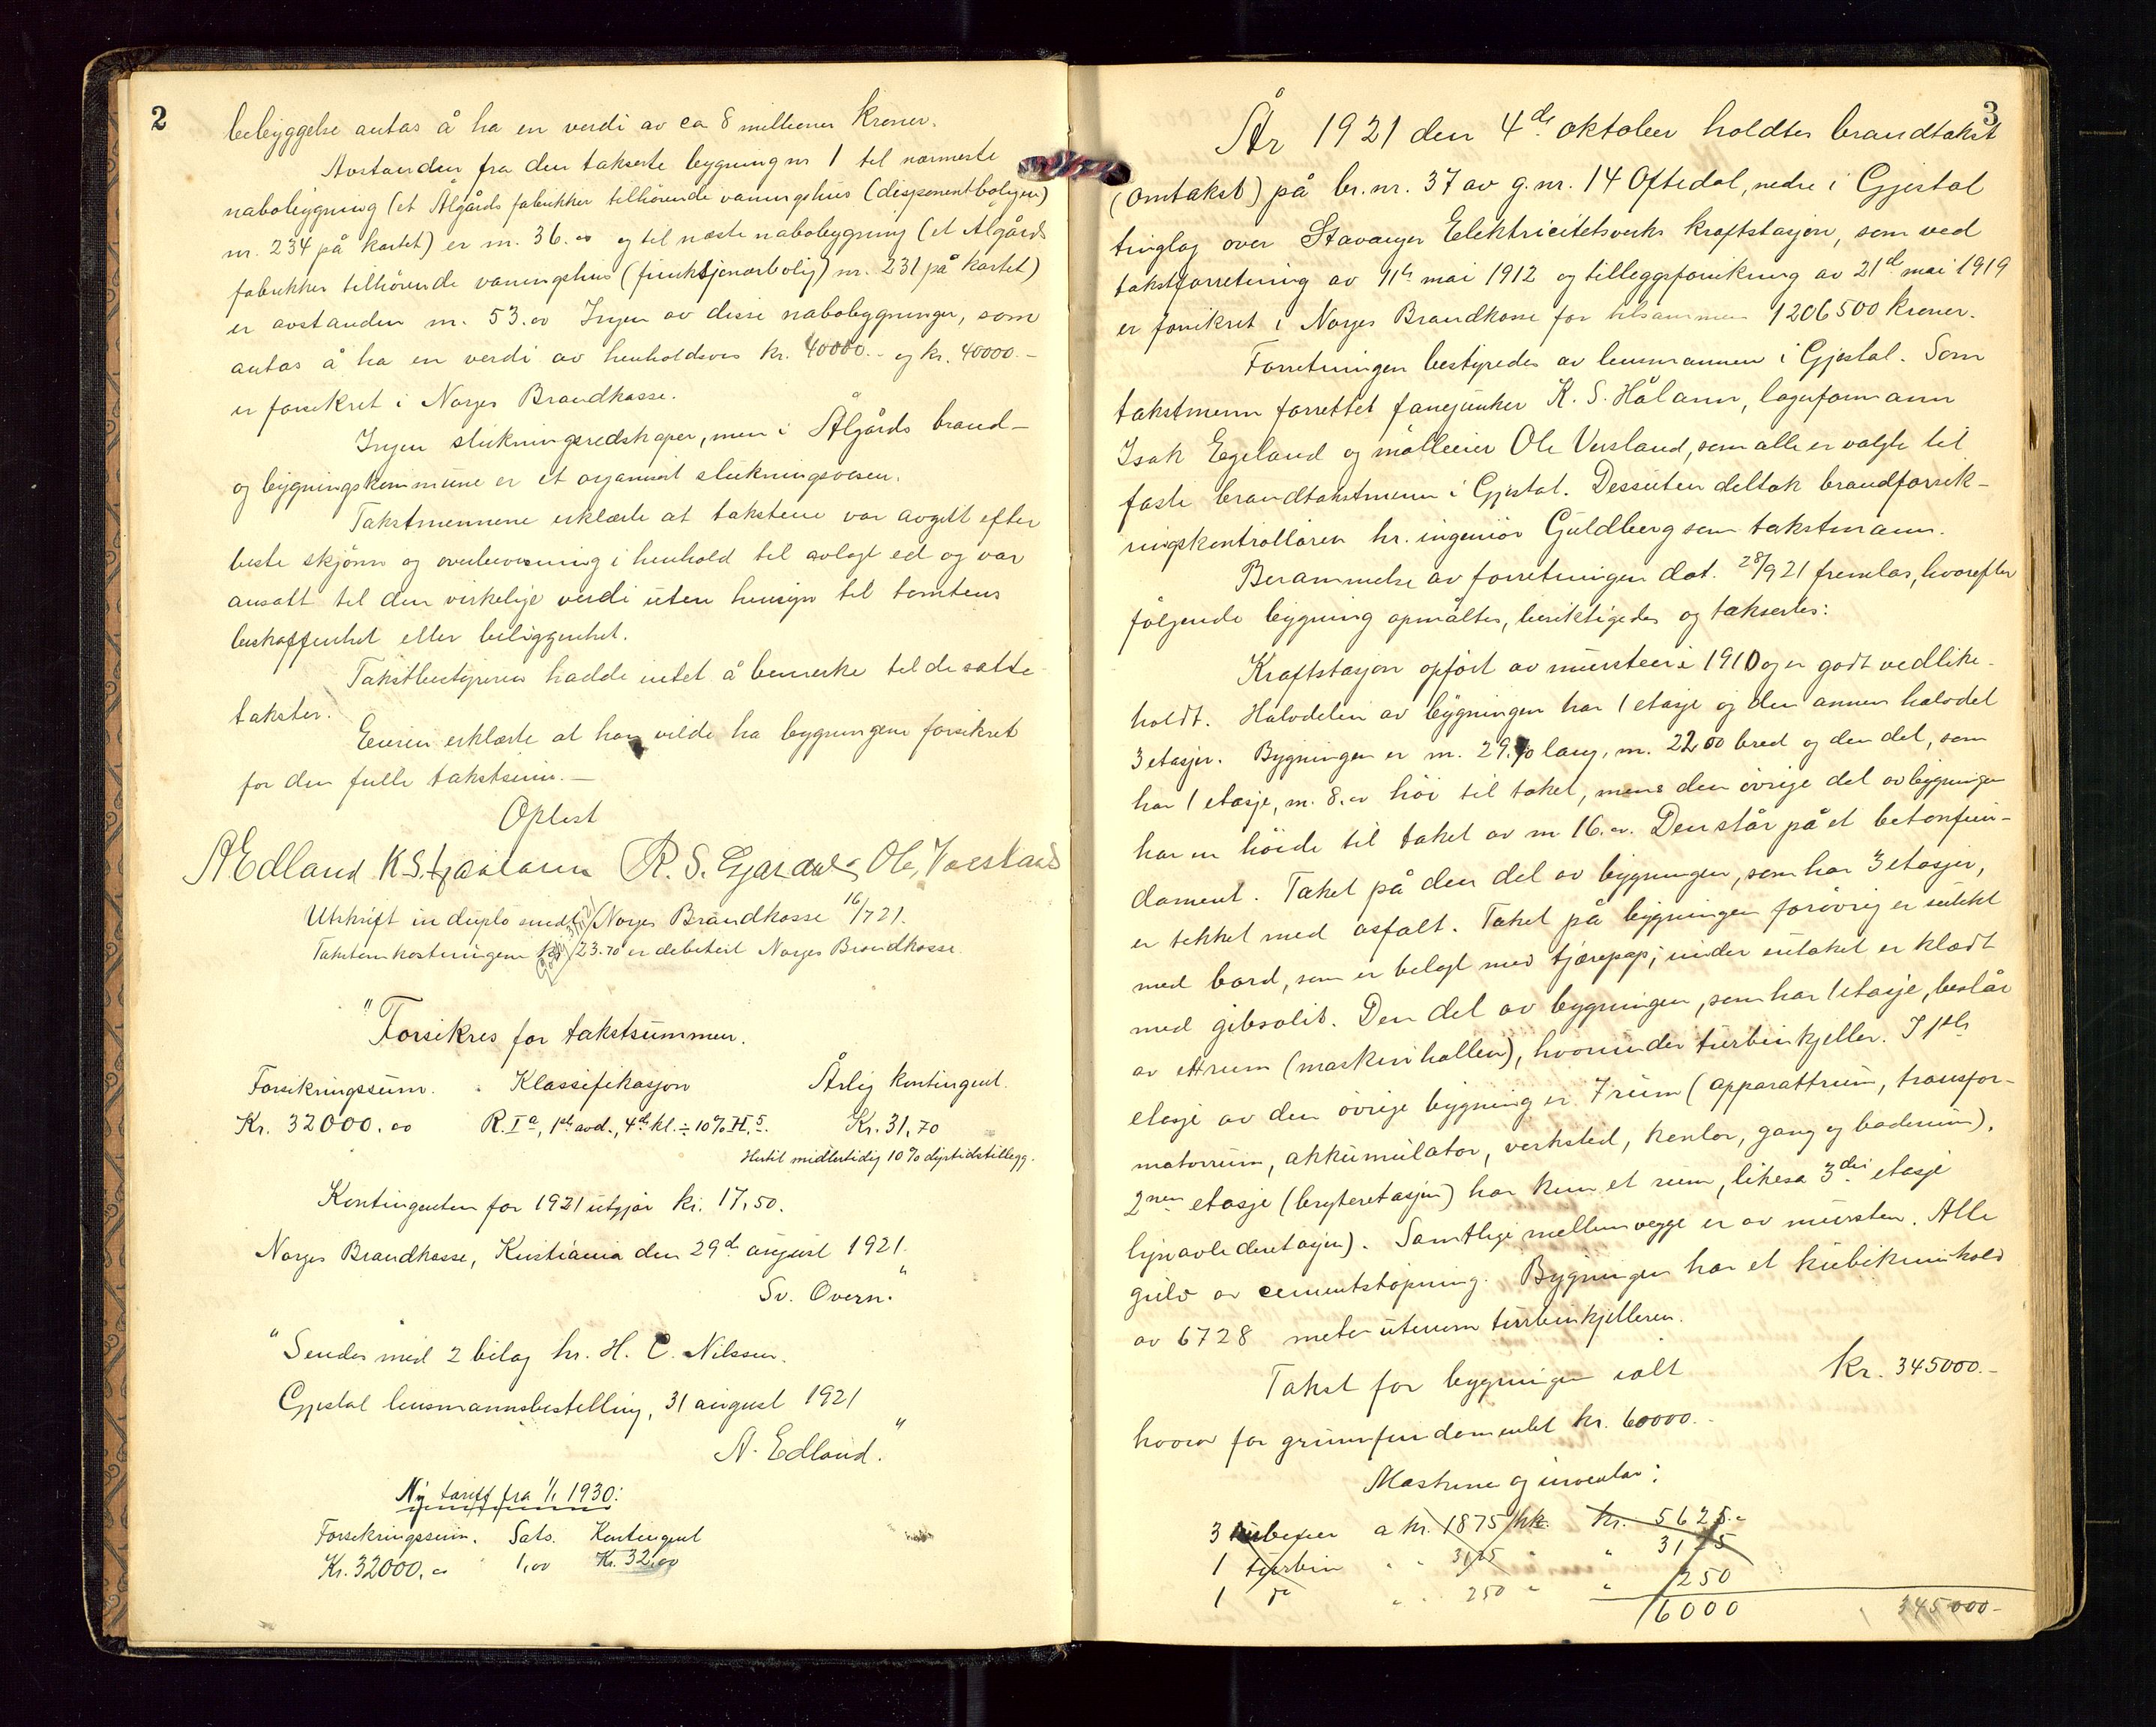 2
bebyggelse antas å ha en verdi av ca 8 millioner kroner.
Avstanden fra den takserte bygning nr 1 til nærmeste
nabobygning (et Ålgårds fabrikker tilhörende våningshus (disponentboligen)
nr. 234 på kartet) er m. 36.00 og til næste nabobygning (et Ålgårds
fabrikker tilhörende våningshus (funksjonærbolig) nr. 231 på kartet)
er avstanden m. 53.00 Ingen av disse nabobygninger, som
antas å ha en verdi av henholdsvis kr. 40000.- og kr. 40000.-
er forsikret i Norges Brandkasse.
Ingen slukningsredskaper, men i Ålgårds brand-
og bygningskommune er et organisert slukningsvesen.
Takstmennene erklærte at takstene var avgitt efter
beste skjönn og overbevisning i henhold til avlagt ed og var
ansatt til den virkelige verdi uten hensyn til tomtens
beskaffenhet eller beliggenhet.
Takstbestyreren hadde intet å bemerke til de satte
takster.
Eieren erklærte at han vilde ha bygningene forsikret
for den fulle takstsum.—
Oplest
A Edland K S. Haaland R. S. Gjesdal Ole Væsland
Utskrift in duplo sendt Norges Brandkasse 16/7 21.
Takstomkostningene kr. 23.70 er debitert Norges Brandkasse.
"Forsikres for takstsummen.
Forsikringssum. Klassifikasjon Årlig kontingent.
Kr. 32000.00 R. Iª, 1ste avd., 4de kl. ÷ 10% H. 5. Kr. 31,70
Hertil midlertidig 10% dyrtidstillegg.
Kontingenten for 1921 utgjör kr. 17,50.
Norges Brandkasse, Kristiania den 29de august 1921.
Sv. Overn."
"Sendes med 2 bilag hr. H. C. Nilssen.
Gjestal lensmannsbestilling, 31 august 1921
A. Edland."
Ny tariff fra 1/1 1930:
Forsikringssum. Sats. Kontingent
Kr. 32000.00 1,00 Kr. 32,00
3
År 1921 den 4de oktober holdtes brandtakst
(omtakst) på br.nr. 37 av g.nr. 14 Oftedal, nedre i Gjestal
tinglag over Stavanger Elektricitetsverks kraftstasjon, som ved
takstforretning av 11te mai 1912 og tilleggsforsikring av 21de mai 1919
er forsikret i Norges Brandkasse for tilsammen 1206500 kroner.
Forretningen bestyredes av lensmannen i Gjestal. Som
takstmenn forrettet fanejunker K. S. Håland, lagerformann
Isak Egeland og mölleeier Ole Versland, som alle er valgte til
faste brandtakstmenn i Gjestal. Dessuten deltok brandforsik-
ringskontrollören hr. ingeniör Guldberg som takstmann.
Berammelse av forretningen dat. 28/9 21 fremlas, hvorefter
fölgende bygning opmåltes, besiktigedes og takseredes:
Kraftstasjon opfört av mursten i 1910 og er godt vedlike-
holdt. Halvdelen av bygningen har 1 etasje og den annen halvdel
3 etasjer. Bygningen er m. 29.70 lang, m. 22.00 bred og den del, som
har 1 etasje, m. 8.00 höi til taket, mens den övrige del av bygningen
har en höide til taket av m 16.00. Den står på et betonfun-
dament. Taket på den del av bygningen, som har 3 etasjer,
er tekket med asfalt. Taket på bygningen forövrig er tekket
med bord, som er belagt med tjærepap; under er taket er klædt
med gibsolit. Den del av bygningen, som har 1 etasje, består
av et rum (maskinhallen), hvorunder turbinkjeller. I 1ste
etasje av den övrige bygning er 7 rum (apparattrum, transfor-
matorrum, akkumulator, verksted, kontor, gang og baderum).
2nen etasje (bryteretasjen) har kun et rum, likesa 3die etasje
lynavlederetasjen). Samtlige mellemvegge er av mursten. Alle
gulv av cementstöpning. Bygningen har et kubikinnhold
av 6728 meter utenom turbinkjelleren.
Takst for bygningen ialt kr. 345000.-
hvorav for grunnfundamentet kr. 60000.-
Maskine og inventar:
3 turbiner a kr. 1875 hk. kr. 5625.-
1 turbin " " 3125 " " 3125
1 do " " 250 " " 250
16000 345000-